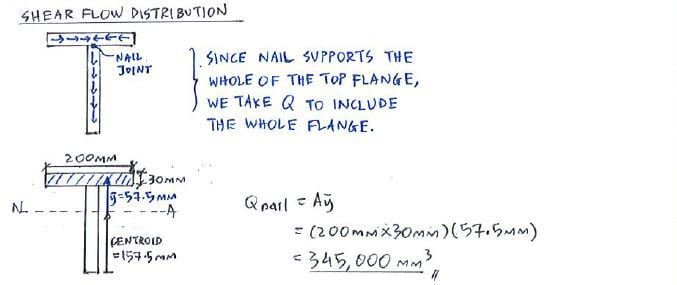 SHEAR FLOW DISTRIBUTION
NAIL
JOINT
SINCE NAIL SUPPORTS THE
WHOLE OF THE TOP FLANGE,
WE TAKE Q TO INCLUDE
THE WHOLE FLANGE.
200MM
30MM
ȳ=57.5MM
N A
CENTROID
=157.5MM
Qnail = Aȳ
= (200MM×30MM)(57.5MM)
= 345,000 MM³